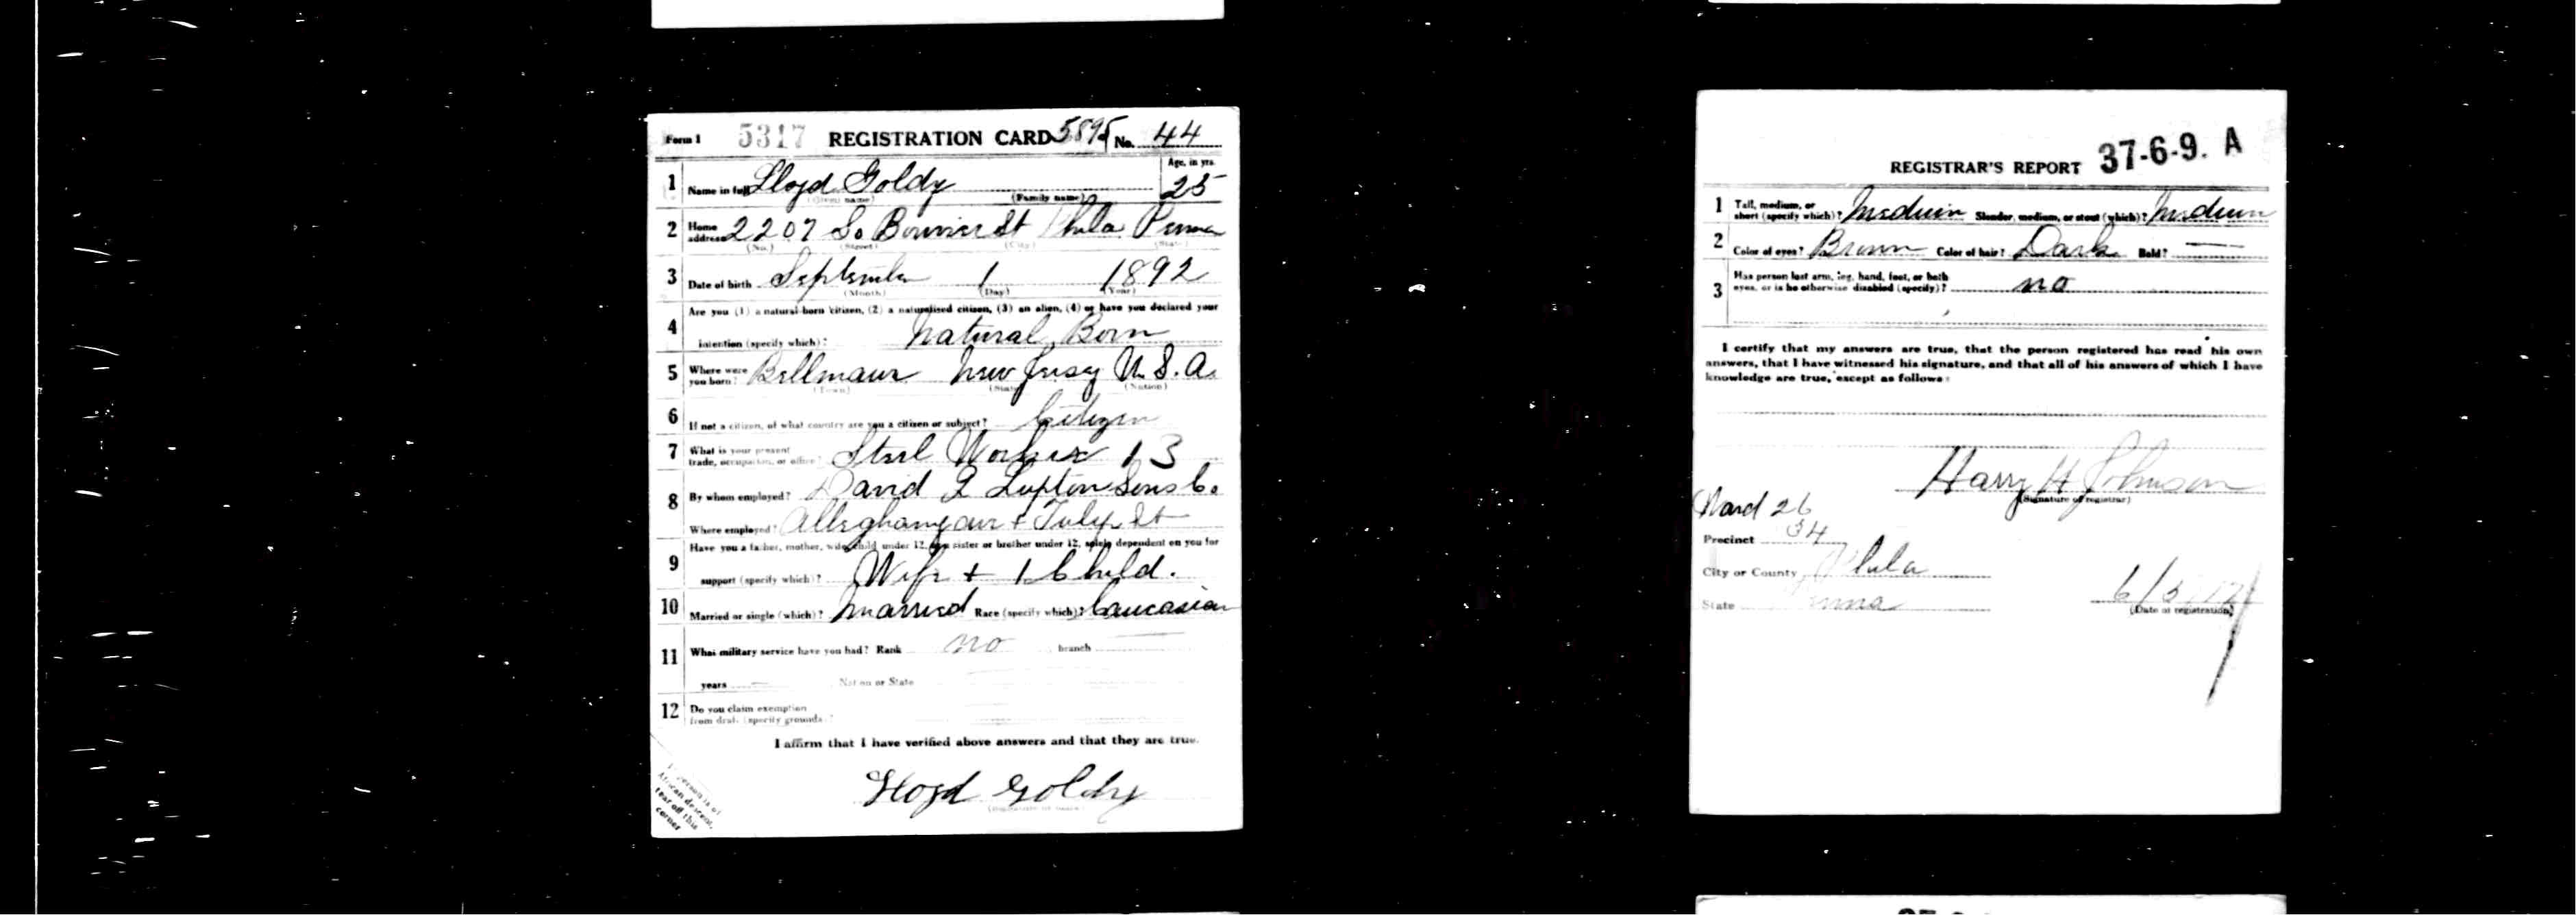 Form 1 5317 REGISTRATION CARD 5895 No. 44
1 Name in full Lloyd Goldy Age, in yrs. 25
(Given name) (Family name)
2 Home address 2207 So Bouvier St Phila Penna
(No.) (Street) (City) (State)
3 Date of birth September 1 1892
(Month) (Day) (Year)
4 Are you (1) a natural-born citizen, (2) a naturalized citizen, (3) an alien, (4) or have you declared your
intention (specify which)? Natural Born
5 Where were you born? Bellmawr New Jersey U.S.A.
(Town) (State) (Nation)
6 If not a citizen, of what country are you a citizen or subject? Citizen
7 What is your present trade, occupation, or office? Steel Worker 13
8 By whom employed? David Lupton Sons Co.
Where employed? Alleghany ave + Tulip St
9 Have you a father, mother, wife, child under 12, or a sister or brother under 12, solely dependent on you for
support (specify which)? Wife + 1 Child.
10 Married or single (which)? Married Race (specify which)? Caucasian
11 What military service have you had? Rank no branch
years Nation or State
12 Do you claim exemption
from draft (specify grounds)?
I affirm that I have verified above answers and that they are true.
Lloyd Goldy
If person is of
African descent,
tear off this
corner
REGISTRAR'S REPORT 37-6-9. A
1 Tall, medium, or short (specify which)? Medium Slender, medium, or stout (which)? Medium
2 Color of eyes? Brown Color of hair? Dark Bald? —
3 Has person lost arm, leg, hand, foot, or both
eyes, or is he otherwise disabled (specify)? no
I certify that my answers are true, that the person registered has read his own
answers, that I have witnessed his signature, and that all of his answers of which I have
knowledge are true, except as follows:
Harry H Johnson
(Signature of registrar)
Ward 26
Precinct 34
City or County Phila
State Penna
6/5/17
(Date of registration)